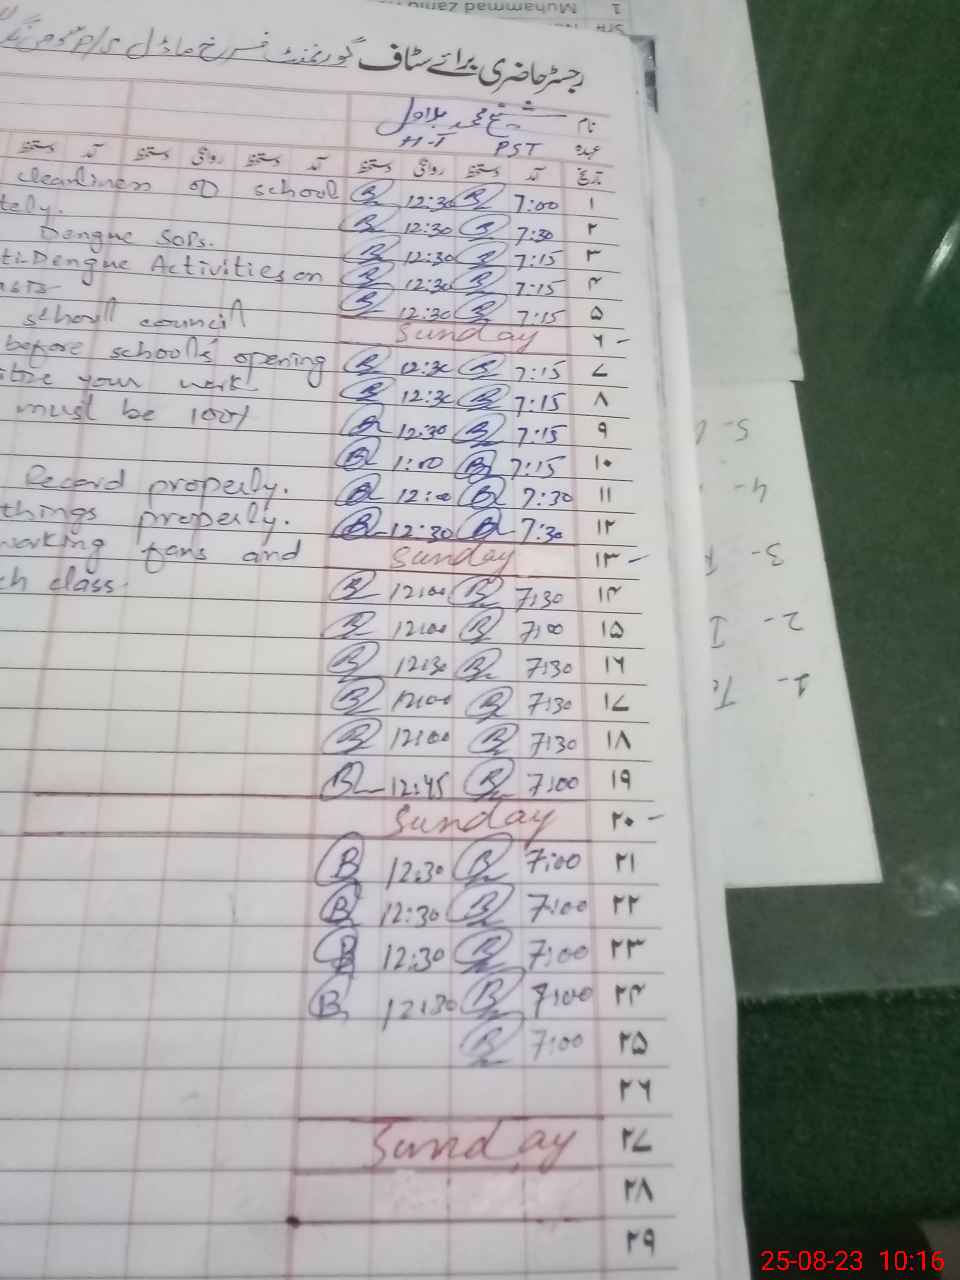 رجسٹر حاضری برائے سٹاف گورنمنٹ
نام
عہدہ PST H-T
تاریخ آمد دستخط روانگی دستخط آمد دستخط روانگی دستخط آمد دستخط
۱ 7:00 12:30 cleanliness of school
tely.
۲ 7:30 12:30 Dengue SOPs.
۳ 7:15 12:30 ti-Dengue Activities on
۴ 7:15 12:30
۵ 7:15 12:30 school council
۶ - Sunday
۷ 7:15 12:30 before school's opening
۸ 7:15 12:30 your work
۹ 7:15 12:30 must be 100%
۱۰ 7:15 1:00
۱۱ 7:30 12:00 Record properly.
۱۲ 7:30 12:30 things properly.
۱۳ - Sunday working fans and
۱۴ 7:30 12:00 ch class.
۱۵ 7:00 12:00
۱۶ 7:30 12:30
۱۷ 7:30 12:00
۱۸ 7:30 12:00
۱۹ 7:00 12:45
۲۰ - Sunday
۲۱ 7:00 12:30
۲۲ 7:00 12:30
۲۳ 7:00 12:30
۲۴ 7:00 12:30
۲۵ 7:00
۲۶
۲۷ Sunday
۲۸
۲۹
1 Muhammad
5-
4-
3-
2- I
1- Te
25-08-23 10:16